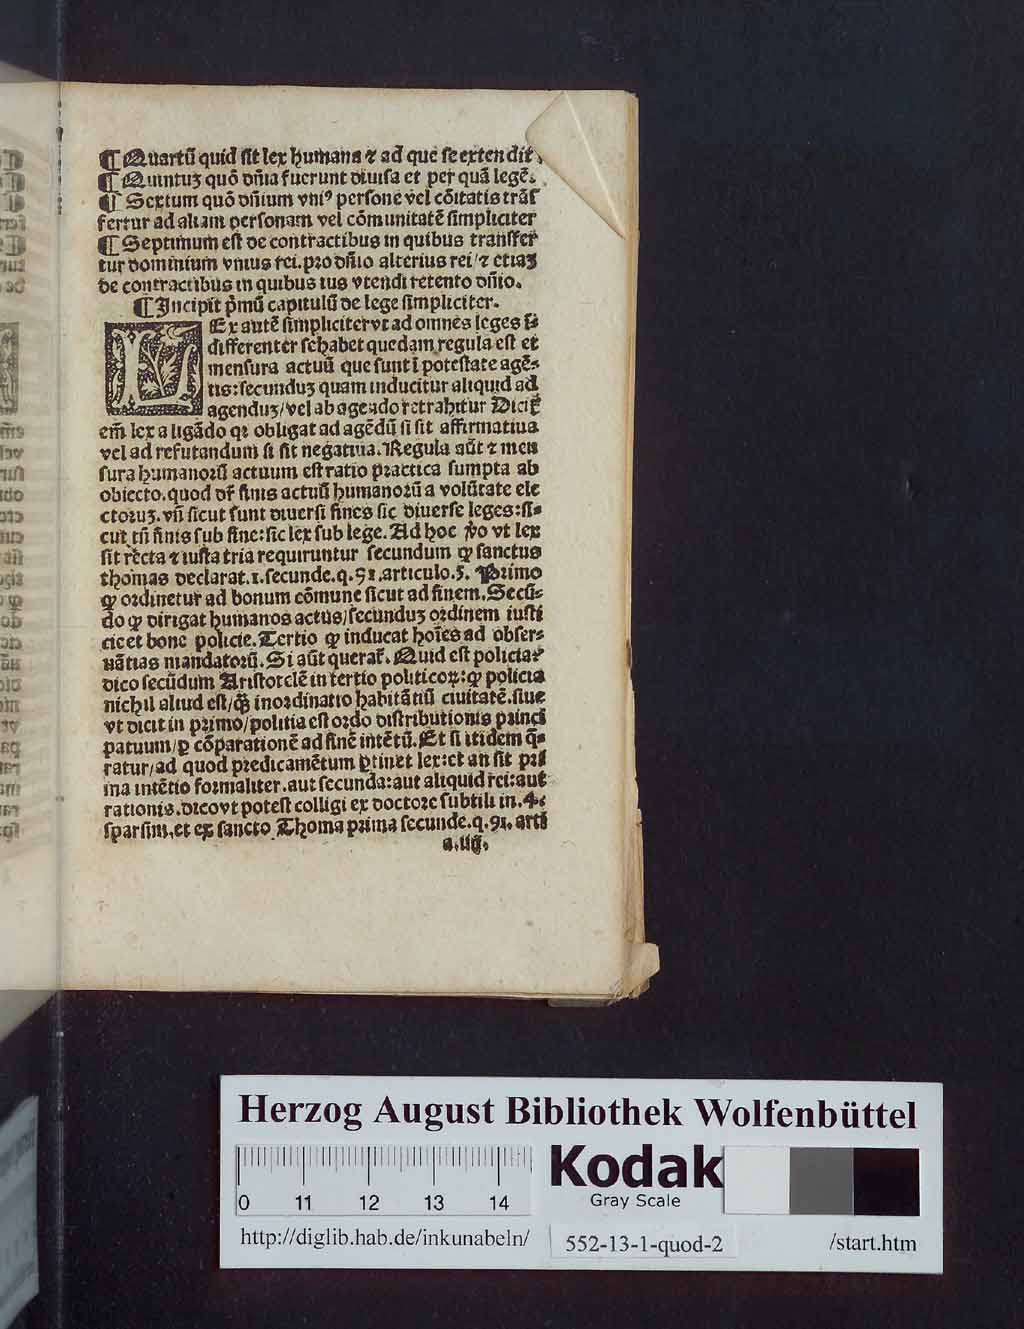 ¶ Quartũ quid sit lex humana ⁊ ad que se extendit.
¶ Quintuꝫ quõ dñia fuerunt diuisa et per quã legẽ.
¶ Sextum quõ dñium vniꝰ persone vel cõitatis trãs
fertur ad aliam personam vel cõmunitatẽ simpliciter
¶ Septimum est de contractibus in quibus transfer
tur dominium vnius rei. pro dñio alterius rei / ⁊ etiaꝫ
de contractibus in quibus ius vtendi retento dñio.
¶ Incipit p̃mũ capitulũ de lege simpliciter.
LEx autẽ simpliciter vt ad omnes leges ĩ
differenter se habet quedam regula est et
mensura actuũ que sunt ĩ potestate agẽ-
tis: secunduꝫ quam inducitur aliquid ad
agenduꝫ / vel ab agẽdo retrahitur Dicit̃
em̃ lex a ligãdo qꝛ obligat ad agẽdũ si sit affirmatiua
vel ad refutandum si sit negatiua. Regula aũt ⁊ men
sura humanorũ actuum est ratio practica sumpta ab
obiecto. quod dr̃ finis actuũ humanorũ a volũtate ele
ctoruꝫ. vñ sicut sunt diuersi fines sic diuerse leges: si-
cut tñ finis sub fine: sic lex sub lege. Ad hoc ṽo vt lex
sit recta ⁊ iusta tria requiruntur secundum ꝙ sanctus
thomas declarat. 1. secunde. q. 91. articulo. 5. Primo
ꝙ ordinetur ad bonum cõmune sicut ad finem. Secũ-
do ꝙ dirigat humanos actus / secunduꝫ ordinem iusti
cie et bone policie. Tertio ꝙ inducat hoĩes ad obser-
uãtias mandatorũ. Si aũt querat̃. Quid est policia?
dico secũdum Aristotelẽ in tertio politicoꝝ: ꝙ policia
nichil aliud est / ꝙ̃ inordinatio habitãtiũ ciuitatẽ. siue
vt dicit in primo / politia est ordo distributionis princi
patuum / ꝑ cõparationẽ ad finẽ intẽtũ. Et si itidem q̃-
ratur / ad quod predicamẽtum ꝑtinet lex: et an sit pri
ma intẽtio formaliter. aut secunda: aut aliquid rei: aut
rationis. dico vt potest colligi ex doctore subtili in. 4.
sparsim. et ex sancto Thoma prima secunde. q. 91. arti
a. iiij.
Herzog August Bibliothek Wolfenbüttel
0 11 12 13 14
Kodak
Gray Scale
http://diglib.hab.de/inkunabeln/
552-13-1-quod-2
/start.htm